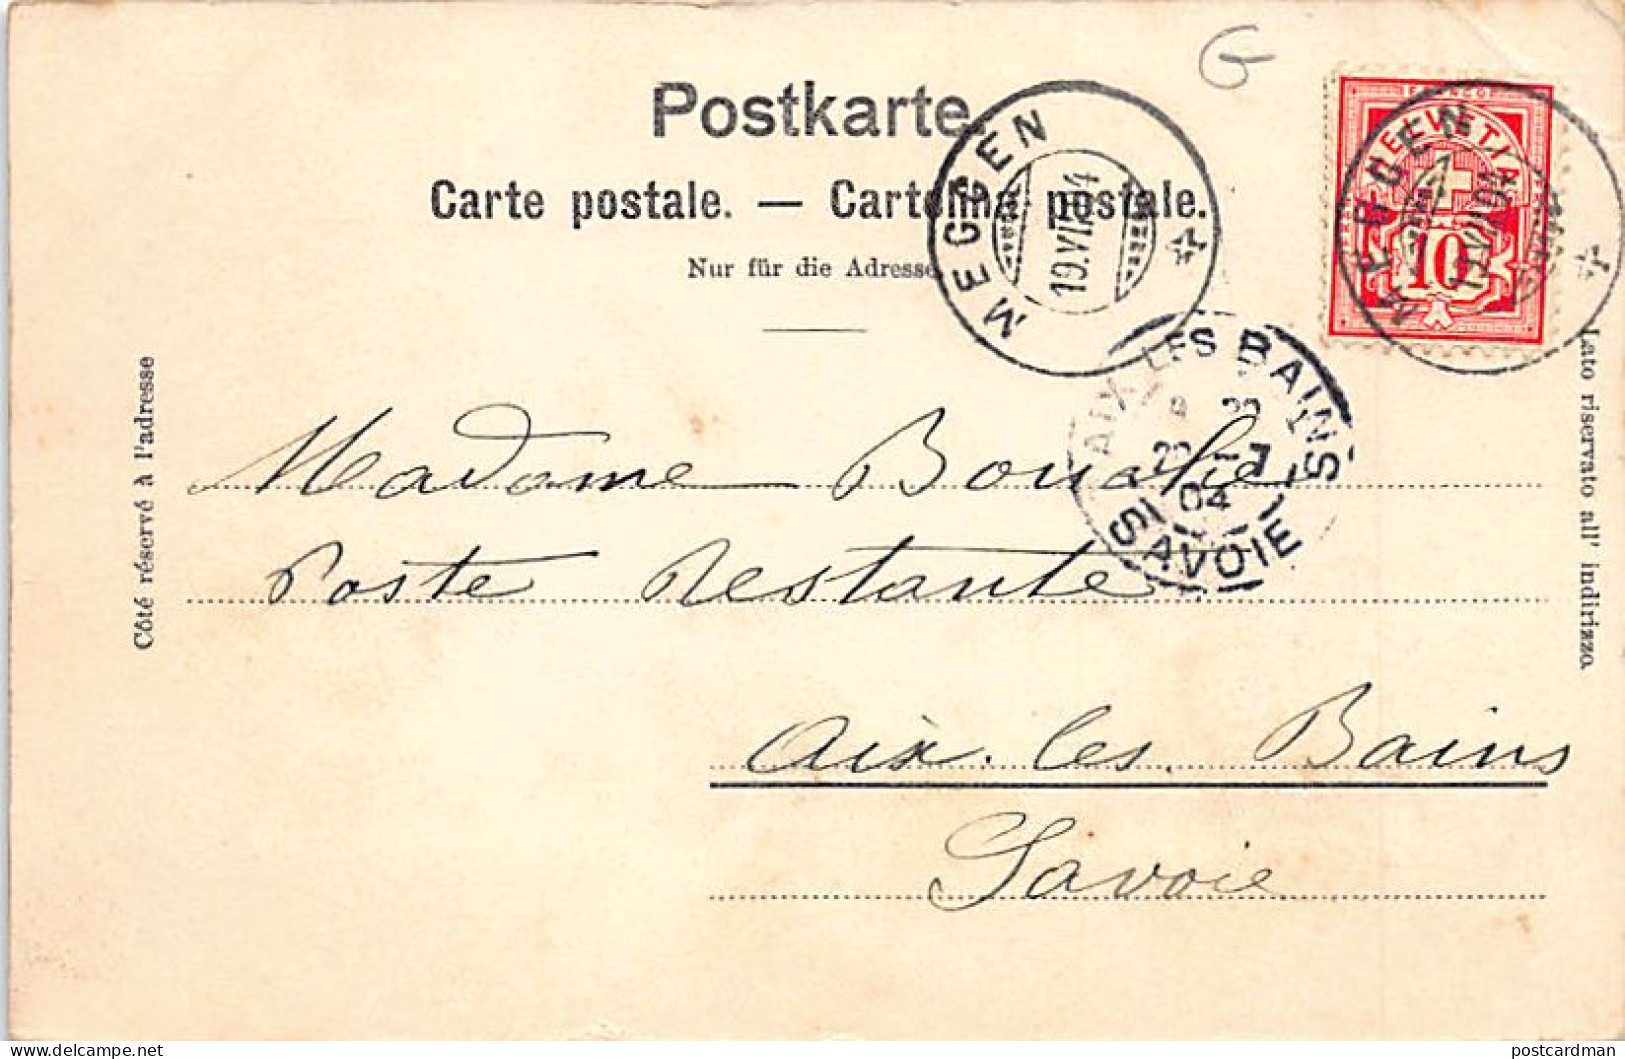 G
Postkarte.
Carte postale. — Cartolina postale.
Nur für die Adresse.
FRANCO
HELVETIA
10
MEGGEN
19.VII.04
MEGGEN
19.VII.04
AIX LES BAINS
04
SAVOIE
Côté réservé à l'adresse
Lato riservato all' indirizzo.
Madame
Poste Restante
Aix-les-Bains
Savoie
delcampe.net
postcardman